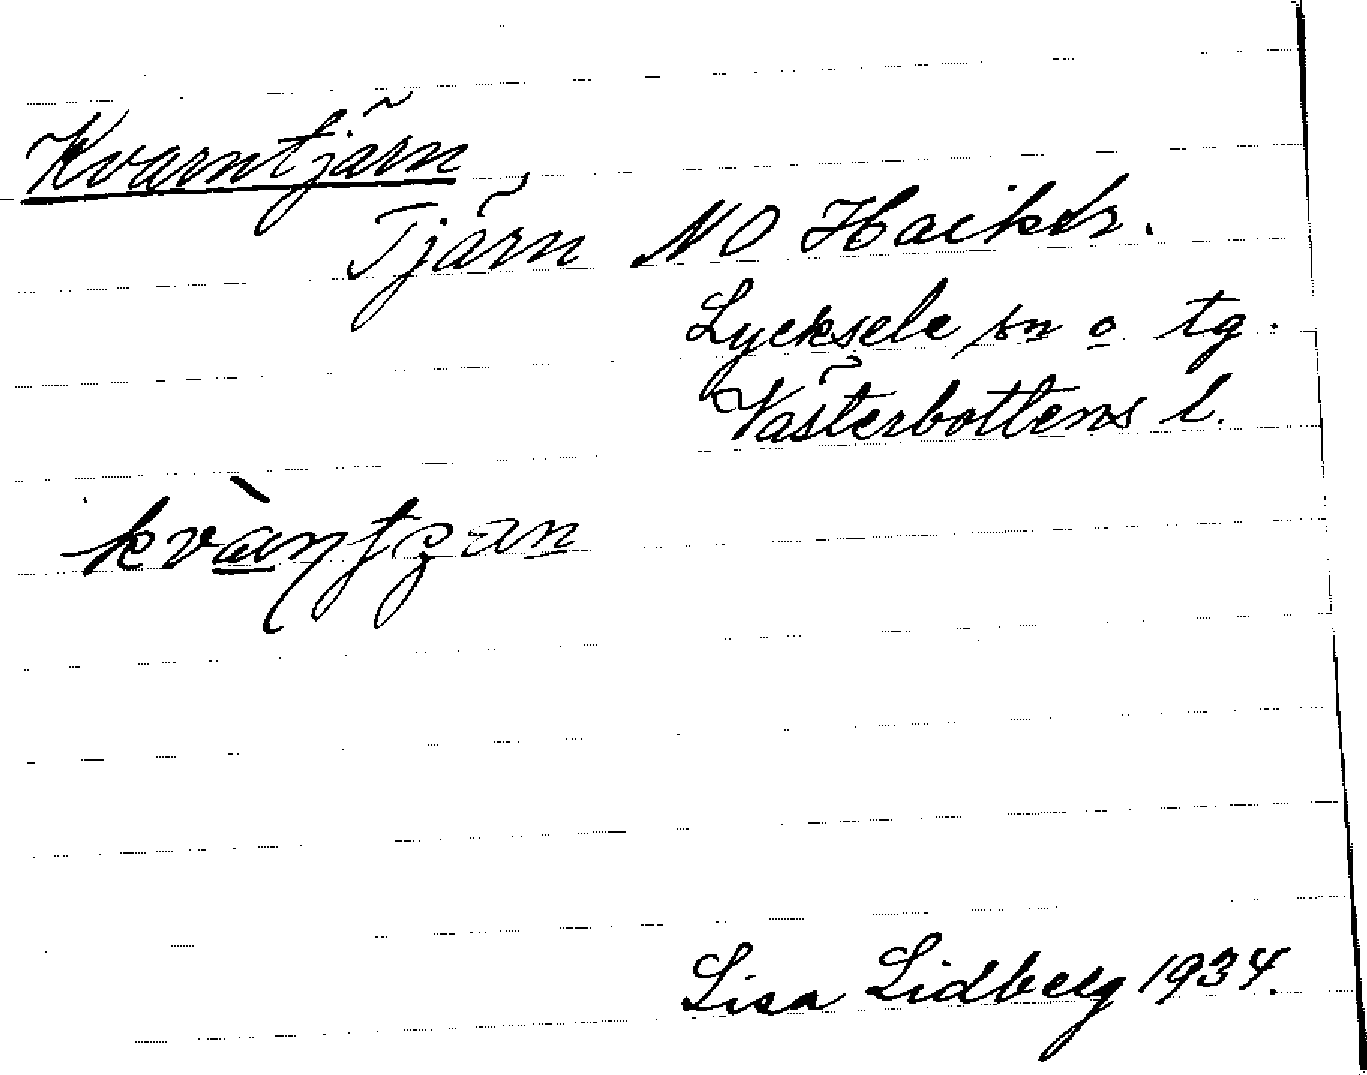 Kvarntjärn
Tjärn NO
Lycksele sn o tg.
Västerbottens l.
Lisa Lidberg 1934.